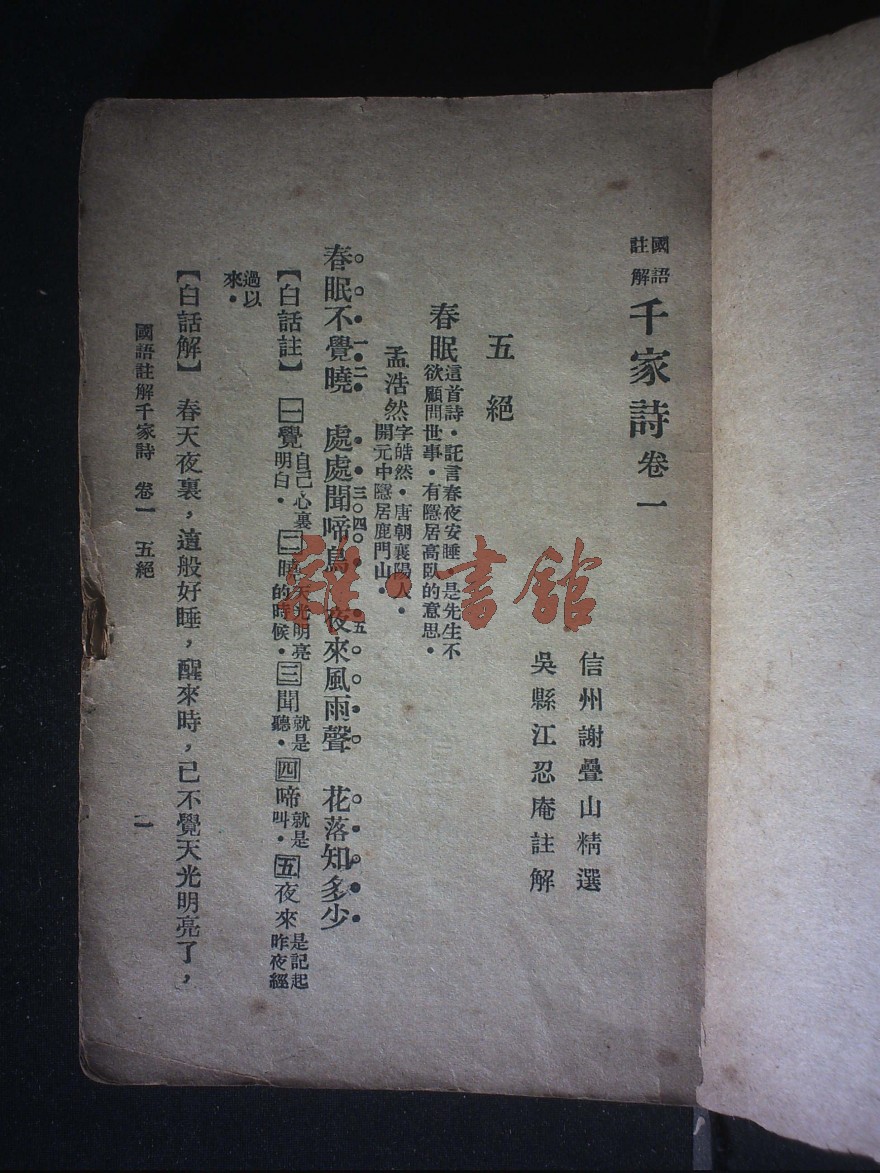 國語註解 千家詩 卷一
信州謝疊山精選
吳縣江忍庵註解
五絕
春眠 這首詩•託言春夜安睡•是先生不欲顧問世事•有隱居高臥的意思•
孟浩然 字皓然•唐朝襄陽人•開元中隱居鹿門山•
春眠不覺曉 處處聞啼鳥 夜來風雨聲 花落知多少
【白話註】 一覺 自己心裏明白• 二曉 天光明亮的時候• 三聞 就是聽• 四啼 就是叫• 五夜來 是記起昨夜經
過以來•
【白話解】 春天夜裏，這般好睡，醒來時，已不覺天光明亮了，
國語註解千家詩 卷一 五絕 一
雜•書館